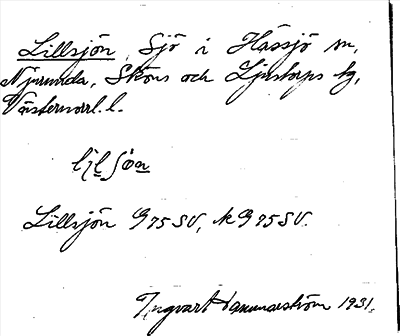 Lillsjön, Sjö i Hässjö sn,
Njurunda, Sköns och Ljustorps tg,
Västernorrl. l.
Lillsjön G75SV, kG75SV.
Ingvar Hammarström 1931.